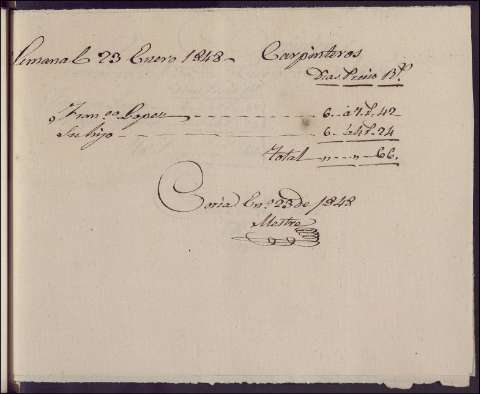 Semanal 23 Enero 1848 Carpinteros
Dias Precio Rs.
Franco Lopez 6 - á 7 r. 42
Su hijo 6 - á 4 r. 24
Total " " 66.
Coria En.o 23 de 1848
Mestre